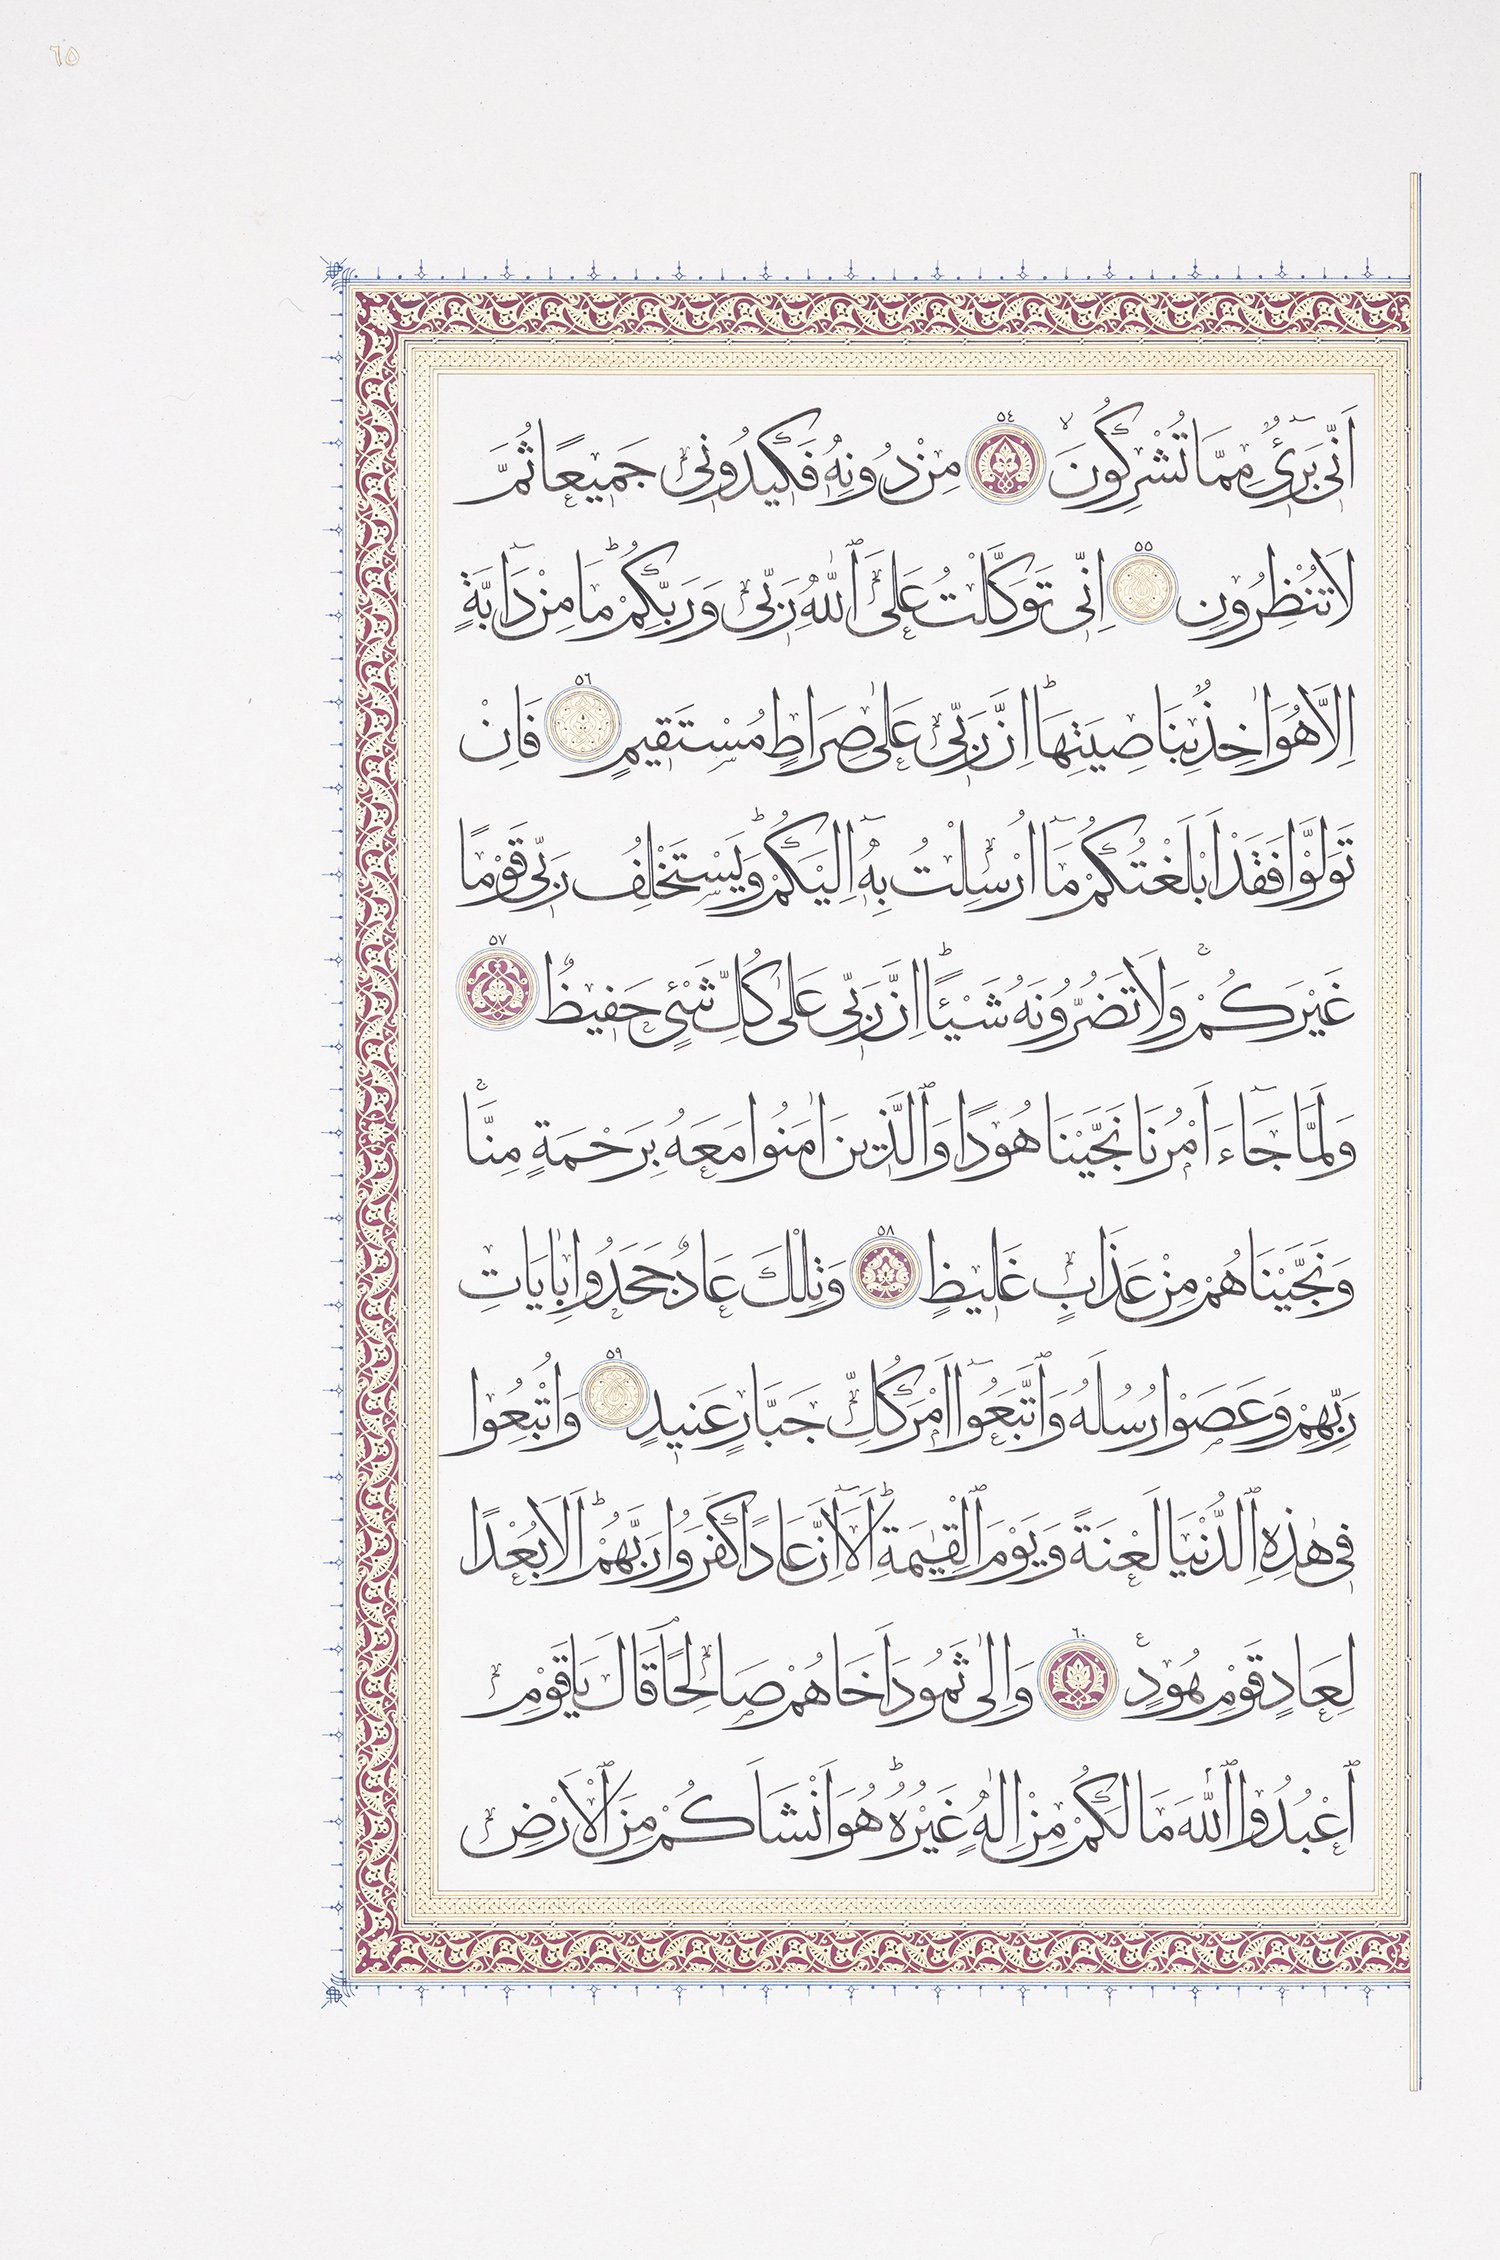 ٦٥
اَنّٖى بَرٖٓىءٌ مِمَّا تُشْرِكُونَۙ ٥٤ مِنْ دُونِهٖ فَكٖيدُونٖى جَمٖيعًا ثُمَّ
لَا تُنْظِرُونِ ٥٥ اِنّٖى تَوَكَّلْتُ عَلَى ٱللّٰهِ رَبّٖى وَرَبِّكُمْؕ مَا مِنْ دَٓابَّةٍ
اِلَّا هُوَ اٰخِذٌ بِنَاصِيَتِهَاؕ اِنَّ رَبّٖى عَلٰى صِرَاطٍ مُسْتَقٖيمٍ ٥٦ فَاِنْ
تَوَلَّوْا فَقَدْ اَبْلَغْتُكُمْ مَٓا اُرْسِلْتُ بِهٖٓ اِلَيْكُمْؕ وَيَسْتَخْلِفُ رَبّٖى قَوْمًا
غَيْرَكُمْۚ وَلَا تَضُرُّونَهُ شَيْـًٔاؕ اِنَّ رَبّٖى عَلٰى كُلِّ شَىْءٍ حَفٖيظٌ ٥٧
وَلَمَّا جَٓاءَ اَمْرُنَا نَجَّيْنَا هُودًا وَٱلَّذٖينَ اٰمَنُوا مَعَهُ بِرَحْمَةٍ مِنَّاۚ
وَنَجَّيْنَاهُمْ مِنْ عَذَابٍ غَلٖيظٍ ٥٨ وَتِلْكَ عَادٌ جَحَدُوا بِاٰيَاتِ
رَبِّهِمْ وَعَصَوْا رُسُلَهُ وَٱتَّبَعُٓوا اَمْرَ كُلِّ جَبَّارٍ عَنٖيدٍ ٥٩ وَاُتْبِعُوا
فٖى هٰذِهِ ٱلدُّنْيَا لَعْنَةً وَيَوْمَ ٱلْقِيٰمَةِؕ اَلَٓا اِنَّ عَادًا كَفَرُوا رَبَّهُمْؕ اَلَا بُعْدًا
لِعَادٍ قَوْمِ هُودٍࣖ ٦٠ وَاِلٰى ثَمُودَ اَخَاهُمْ صَالِحًاۢ قَالَ يَاقَوْمِ
ٱعْبُدُوا ٱللّٰهَ مَا لَكُمْ مِنْ اِلٰهٍ غَيْرُهُؕ هُوَ اَنْشَاَكُمْ مِنَ ٱلْاَرْضِ